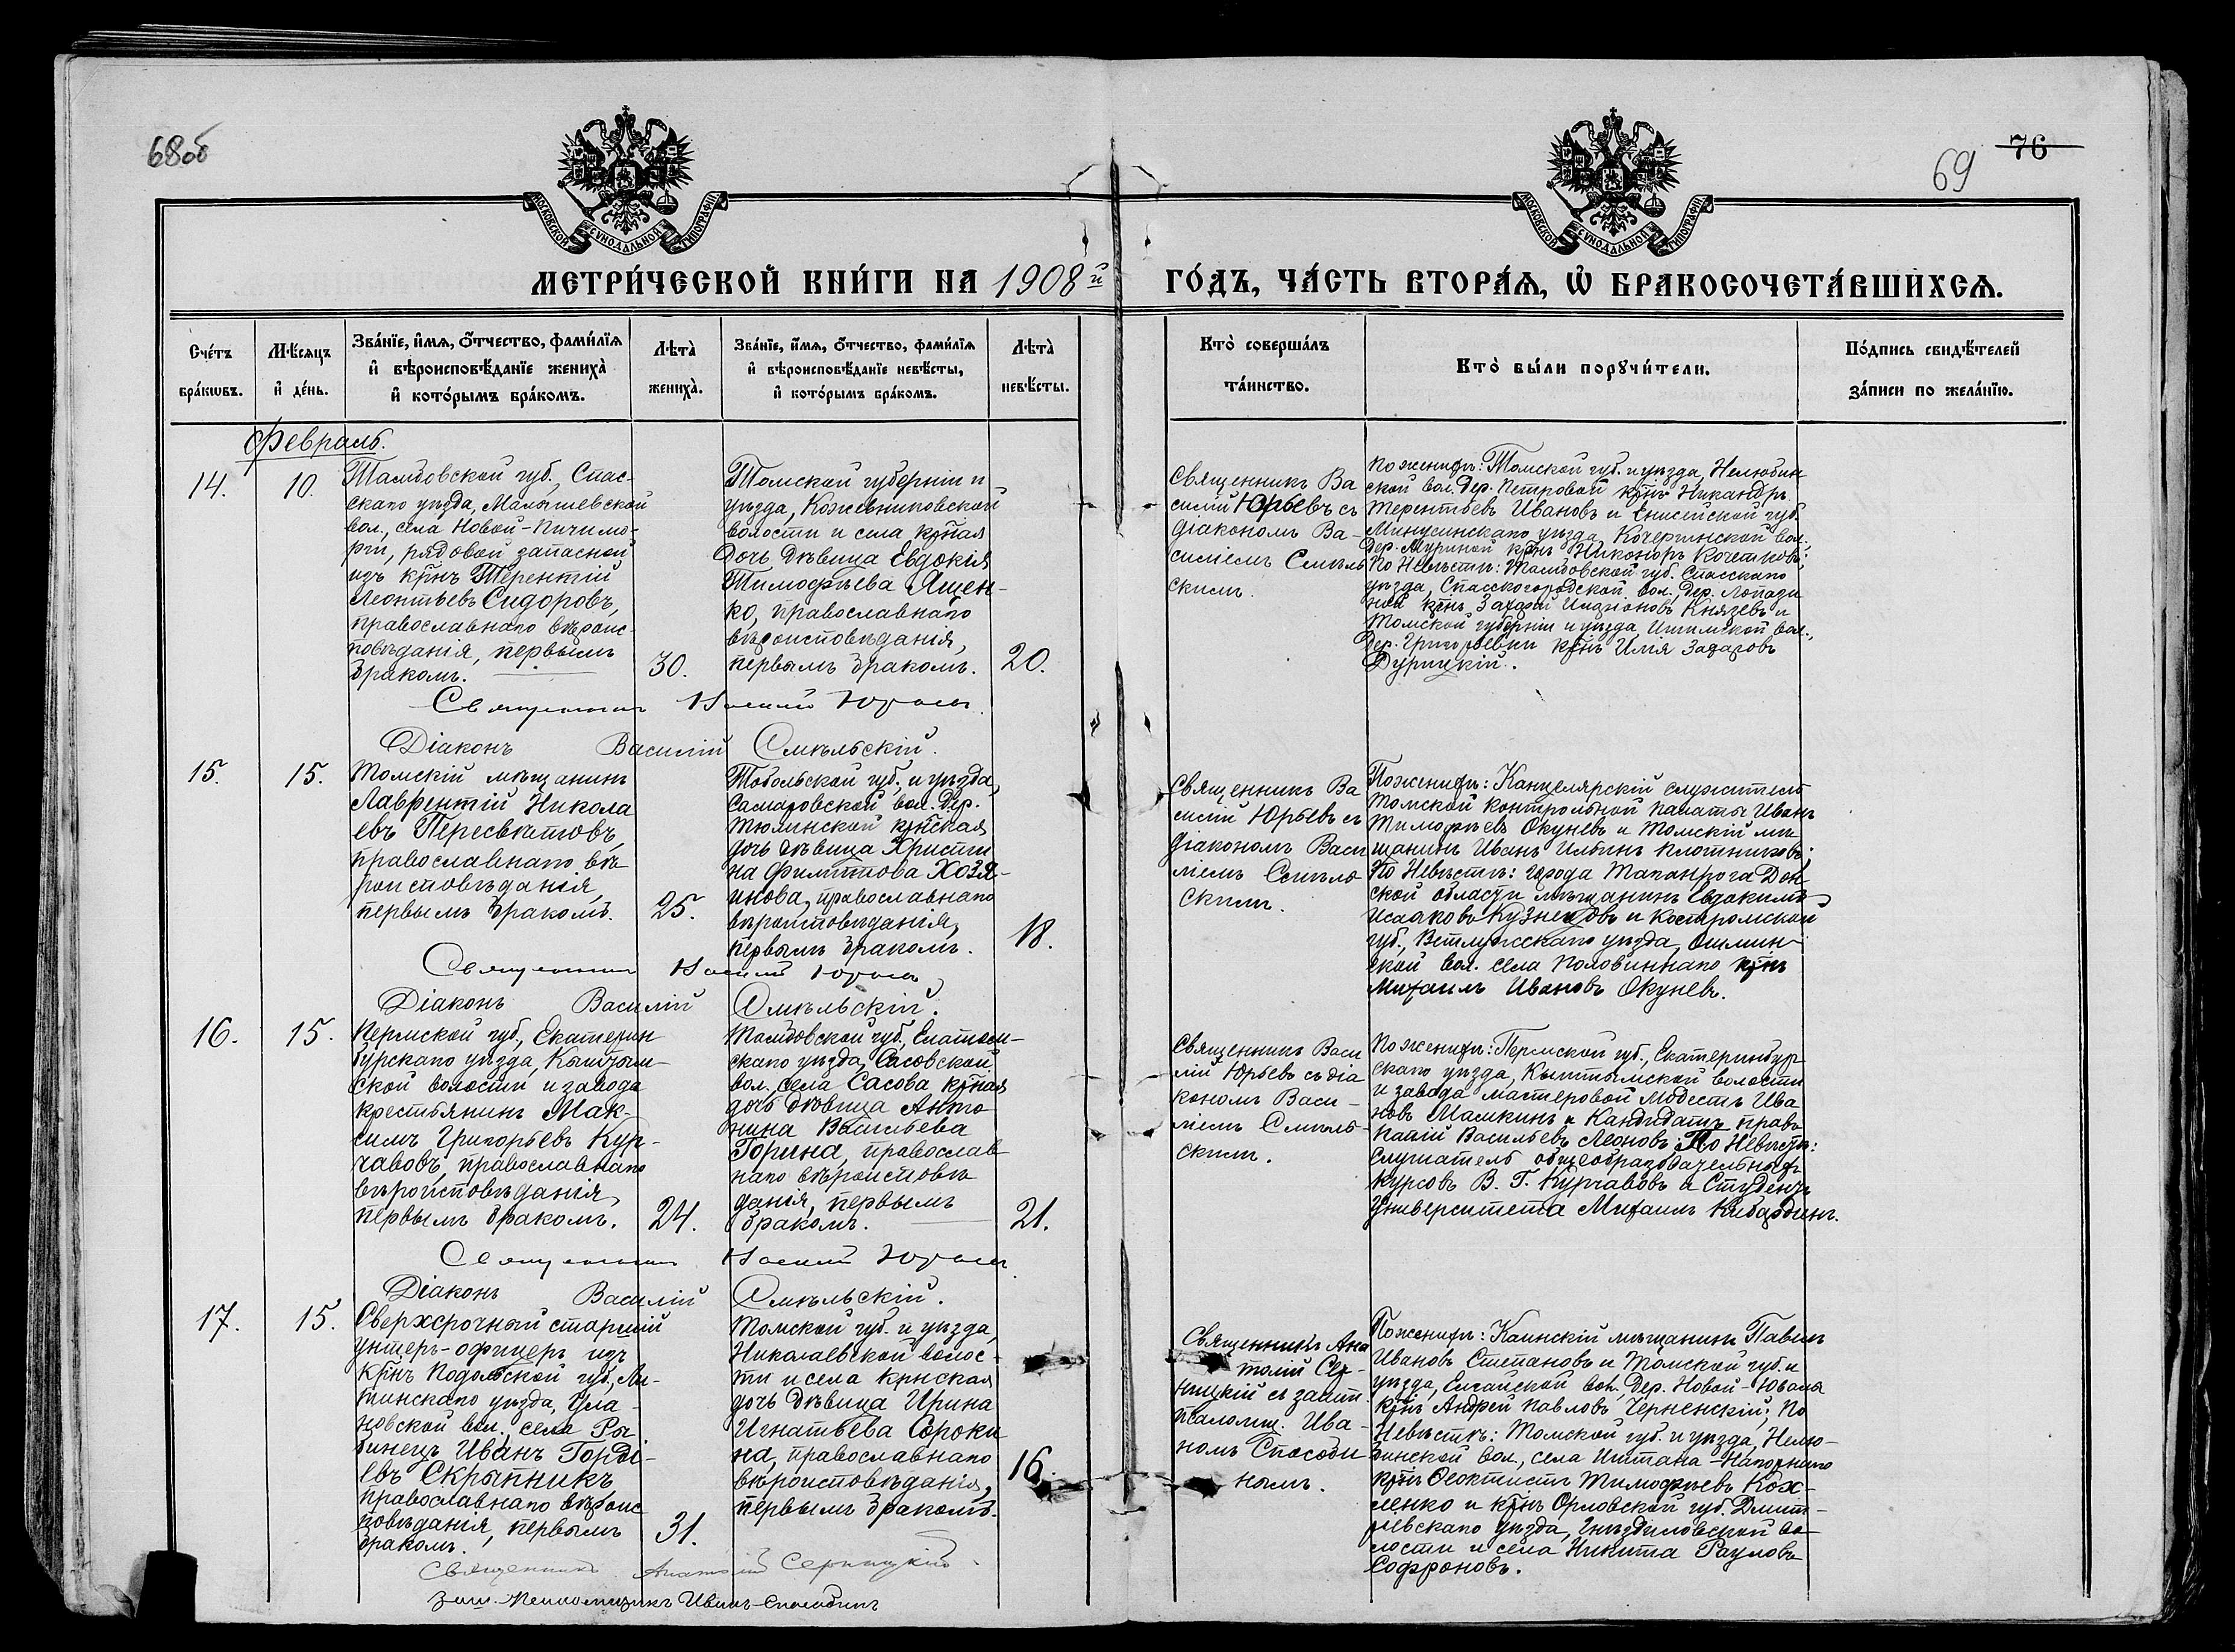 68об
69
76
МОСКОВСКОЙ СѴНОДАЛЬНОЙ ТИПОГРАФІИ
МОСКОВСКОЙ СѴНОДАЛЬНОЙ ТИПОГРАФІИ
МЕТРИ́ЧЕСКОЙ КНИ́ГИ НА 1908й
ГО́ДЪ, ЧА́СТЬ ВТОРА́Ѧ, Ѽ БРАКОСОЧЕТА́ВШИХСѦ.
Сче́тъ
бра́кѡвъ.
Мѣ́сяцъ
и҆ де́нь.
Зва́нїе, и҆́мѧ, ѻ҆́тчество, фами́лїѧ
и҆ вѣроисповѣ́данїе жениха̀
и҆ кото́рымъ бра́комъ.
Лѣта̀
жениха̀.
Зва́нїе, и҆́мѧ, ѻ҆́тчество, фами́лїѧ
и҆ вѣроисповѣ́данїе невѣ́сты,
и҆ кото́рымъ бра́комъ.
Лѣта̀
невѣ́сты.
Кто̀ соверша́лъ
та́инство.
Кто̀ бы́ли порꙋчи́тели.
По́дпись свидѣ́телей
за́писи по жела́нїю.
Февраль.
14.
10.
Тамбовской губ., Спас-
скаго уѣзда, Малышевской
вол., села Новой-Пичимо-
рги, рядовой запасной
изъ кр̃нъ Терентій
Леонтьевъ Сидоровъ,
православнаго вѣроис-
повѣданія, первымъ
бракомъ.
30.
Томской губерніи и
уѣзда, Кожевниковской
волости и села кр̃ная
дочь дѣвица Евдокія
Тимофѣева Ящен-
ко, православнаго
вѣроисповѣданія,
первымъ бракомъ.
20.
Священникъ Ва
силій Юрьевъ съ
діакономъ Ва-
силіемъ Смѣль
скимъ.
По женихѣ: Томской губ. и уѣзда, Нелюбин
ской вол. дер. Петровой кр̃нъ Никандръ
Терентьевъ Ивановъ и Енисейской губ.
Минусинскаго уѣзда, Кочергинской вол.
дер. Муриной кр̃нъ Никоноръ Кочетковъ;
По Невѣстѣ: Тамбовской губ. Спасскаго
уѣзда, Спасскогородской вол., дер.
кр̃нъ Захарій Князевъ и
Томской губерніи и уѣзда, Ишимской вол.,
дер. Григорьевки кр̃нъ Илія Захаровъ
Дурицкій.
Священникъ Василій Юрьевъ
Діаконъ Василій Смѣльскій.
15.
15.
Томскій мѣщанинъ
Лаврентій Никола
евъ Пересвѣтовъ,
православнаго вѣ
роисповѣданія,
первымъ бракомъ.
25.
Тобольской губ. и уѣзда,
Самаровской вол. дер.
Тюлинской кр̃нская
дочь дѣвица Христи
на Филиппова Хозя-
инова, православнаго
вѣроисповѣданія,
первымъ бракомъ.
18.
Священникъ Ва
силій Юрьевъ съ
діакономъ Васи
ліемъ Смѣль
скимъ.
По женихѣ: Канцелярскій служитель
Томской Контрольной Палаты Иванъ
Тимофѣевъ Окуневъ и Томскій мѣ
щанинъ Иванъ Ильинъ Плотниковъ;
По Невѣстѣ: города Таганрога Дон-
ской области мѣщанинъ Евдокимъ
Исааковъ Кузнецовъ и Костромской
губ., Ветлужскаго уѣзда, Ошмин-
ской вол. села Половиннаго кр̃нъ
Михаилъ Ивановъ Окуневъ.
Священникъ Василій Юрьевъ
Діаконъ Василій Смѣльскій.
16.
15.
Пермской губ., Екатерин
бурскаго уѣзда, Кыштым-
ской волости и завода
крестьянинъ Мак-
симъ Григорьевъ Кур-
чавовъ, православнаго
вѣроисповѣданія,
первымъ бракомъ.
24.
Тамбовской губ., Елатом-
скаго уѣзда, Сасовской
вол. села Сасова кр̃ная
дочь дѣвица Анто
нина Васильева
Горина, православ
наго вѣроисповѣ
данія, первымъ
бракомъ.
21.
Священникъ Васи
лій Юрьевъ съ діа
кономъ Васи-
ліемъ Смѣль-
скимъ.
По женихѣ: Пермской губ., Екатеринбур
скаго уѣзда, Кыштымской волости
и завода мастеровой Модестъ Ива
новъ Мамкинъ и Кандидатъ правъ
Папій Васильевъ Леоновъ; По Невѣстѣ:
Слушатель общеобразовательныхъ
курсовъ В. Г. Курчавовъ и Студентъ
Университета Михаилъ Кибардинъ.
Священникъ Василій Юрьевъ
Діаконъ Василій Смѣльскій.
17.
15.
Сверхсрочный старшій
унтеръ-офицеръ изъ
кр̃нъ Подольской губ., Ли-
тинскаго уѣзда, Ула-
новской вол., села Ры
бинецъ Иванъ Горді-
евъ Скрыпникъ,
православнаго вѣроис
повѣданія, первымъ
бракомъ.
31.
Томской губ. и уѣзда,
Николаевской волос-
ти и села кр̃нская
дочь дѣвица Ирина
Игнатьева Сороки
на, православнаго
вѣроисповѣданія,
первымъ бракомъ.
16.
Священникъ Ана
толій Сер-
ницкій съ зашт.
псаломщ. Ива-
номъ Способи
нымъ.
По женихѣ: Каинскій мѣщанинъ Павелъ
Ивановъ Степановъ и Томской губ. и
уѣзда, Елгайской вол., дер. Новой-Ювалы
кр̃нъ Андрей Павловъ Черненскій; По
Невѣстѣ: Томской губ. и уѣзда, Нелю-
бинской вол., села Иштана-Нагорнаго
кр̃нъ Ѳеоктистъ Тимофѣевъ Кох-
ленко и кр̃нъ Орловской губ. Дмит-
ревскаго уѣзда, Гнѣздиловской во
лости и села Никита
Софроновъ.
Священникъ Анатолій Серницкій
заш. Псаломщикъ Иванъ Способинъ